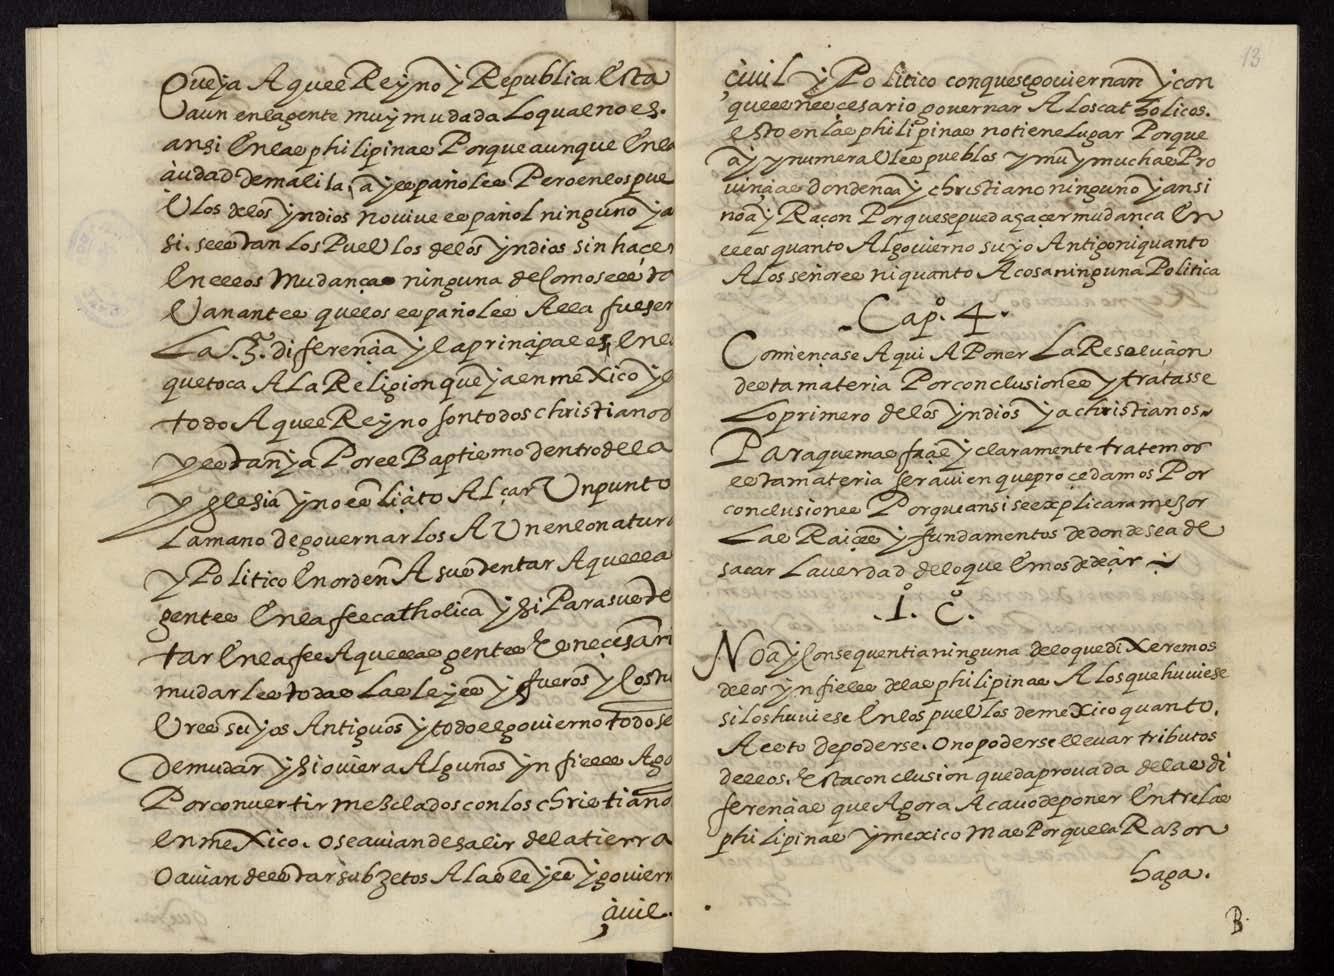 Queya Aquel Reyno y Republica Esta
aun en la gente muy mudada Lo qual no es.
ansi En las philipinas Porque aunque En la
çiudad de manila, ay españoles Pero en los pue
blos de los yndios no vive español ninguno y a
si. se estan Los Pueblos de los yndios sin hacer
En ellos Mudança ninguna de como se esta
Van antes que los españoles Alla fuesen
La .3ª. diferençia y la prinçipal es, En lo
que toca A La Religion que ya en mexico y e
todo Aquel Reyno son todos christianos
y estan ya Por el Baptismo dentro de la
yglesia y no es liçito Alçar Un punto
La mano de governarlos A Un en lo natura
y Politico En orden A sustentar Aquella
gente En la fee catholica y si Para susten
tar En la fee Aquellas gentes Es necesari
mudarles todas Las leyes y fueros y Costu
bres suyos Antiguos y todo el govierno todo se
de mudar y si oviera Algunos ynfieles Ago
Por convertir mezclados con los christiano
En mexico. o se avian de salir de la tierra
O avian de estar subgetos A las leyes y goviern
çivil.
13
çivil y Politico con que se goviernan y con
que es neçesario governar A los catholicos.
esto en las philipinas no tiene lugar Porque
ay ynumerables pueblos y muy muchas Pro
vinçias donde no ay christiano ninguno y ansi
no ay Raçon Porque se pueda haçer mudança En
ellos quanto Al govierno suyo Antigo ni quanto
A los señores ni quanto A cosa ninguna Politica
Cap.º 4.
Comiençase Aqui A Poner La Resoluçion
de esta materia Por conclusiones y tratasse
Lo primero de los yndios ya christianos.
Para que mas façil y claramente tratemos
esta materia sera vien que proçedamos Por
conclusiones Porque ansi se explicara mejor
Las Raiçes y fundamentos de donde se a de
sacar La verdad de lo que Emos de deçir
.1.º C.º
No ay Consequentia ninguna de lo que dixeremos
de los ynfieles de las philipinas A los que huviese
si los huviese En los pueblos de mexico quanto.
A esto de poderse. O no poderse llevar tributos
dellos. Esta conclusion queda provada de las di
ferençias que Agora Acavo de poner Entre las
philipinas y mexico Mas Porque la Razon
haga.
B.